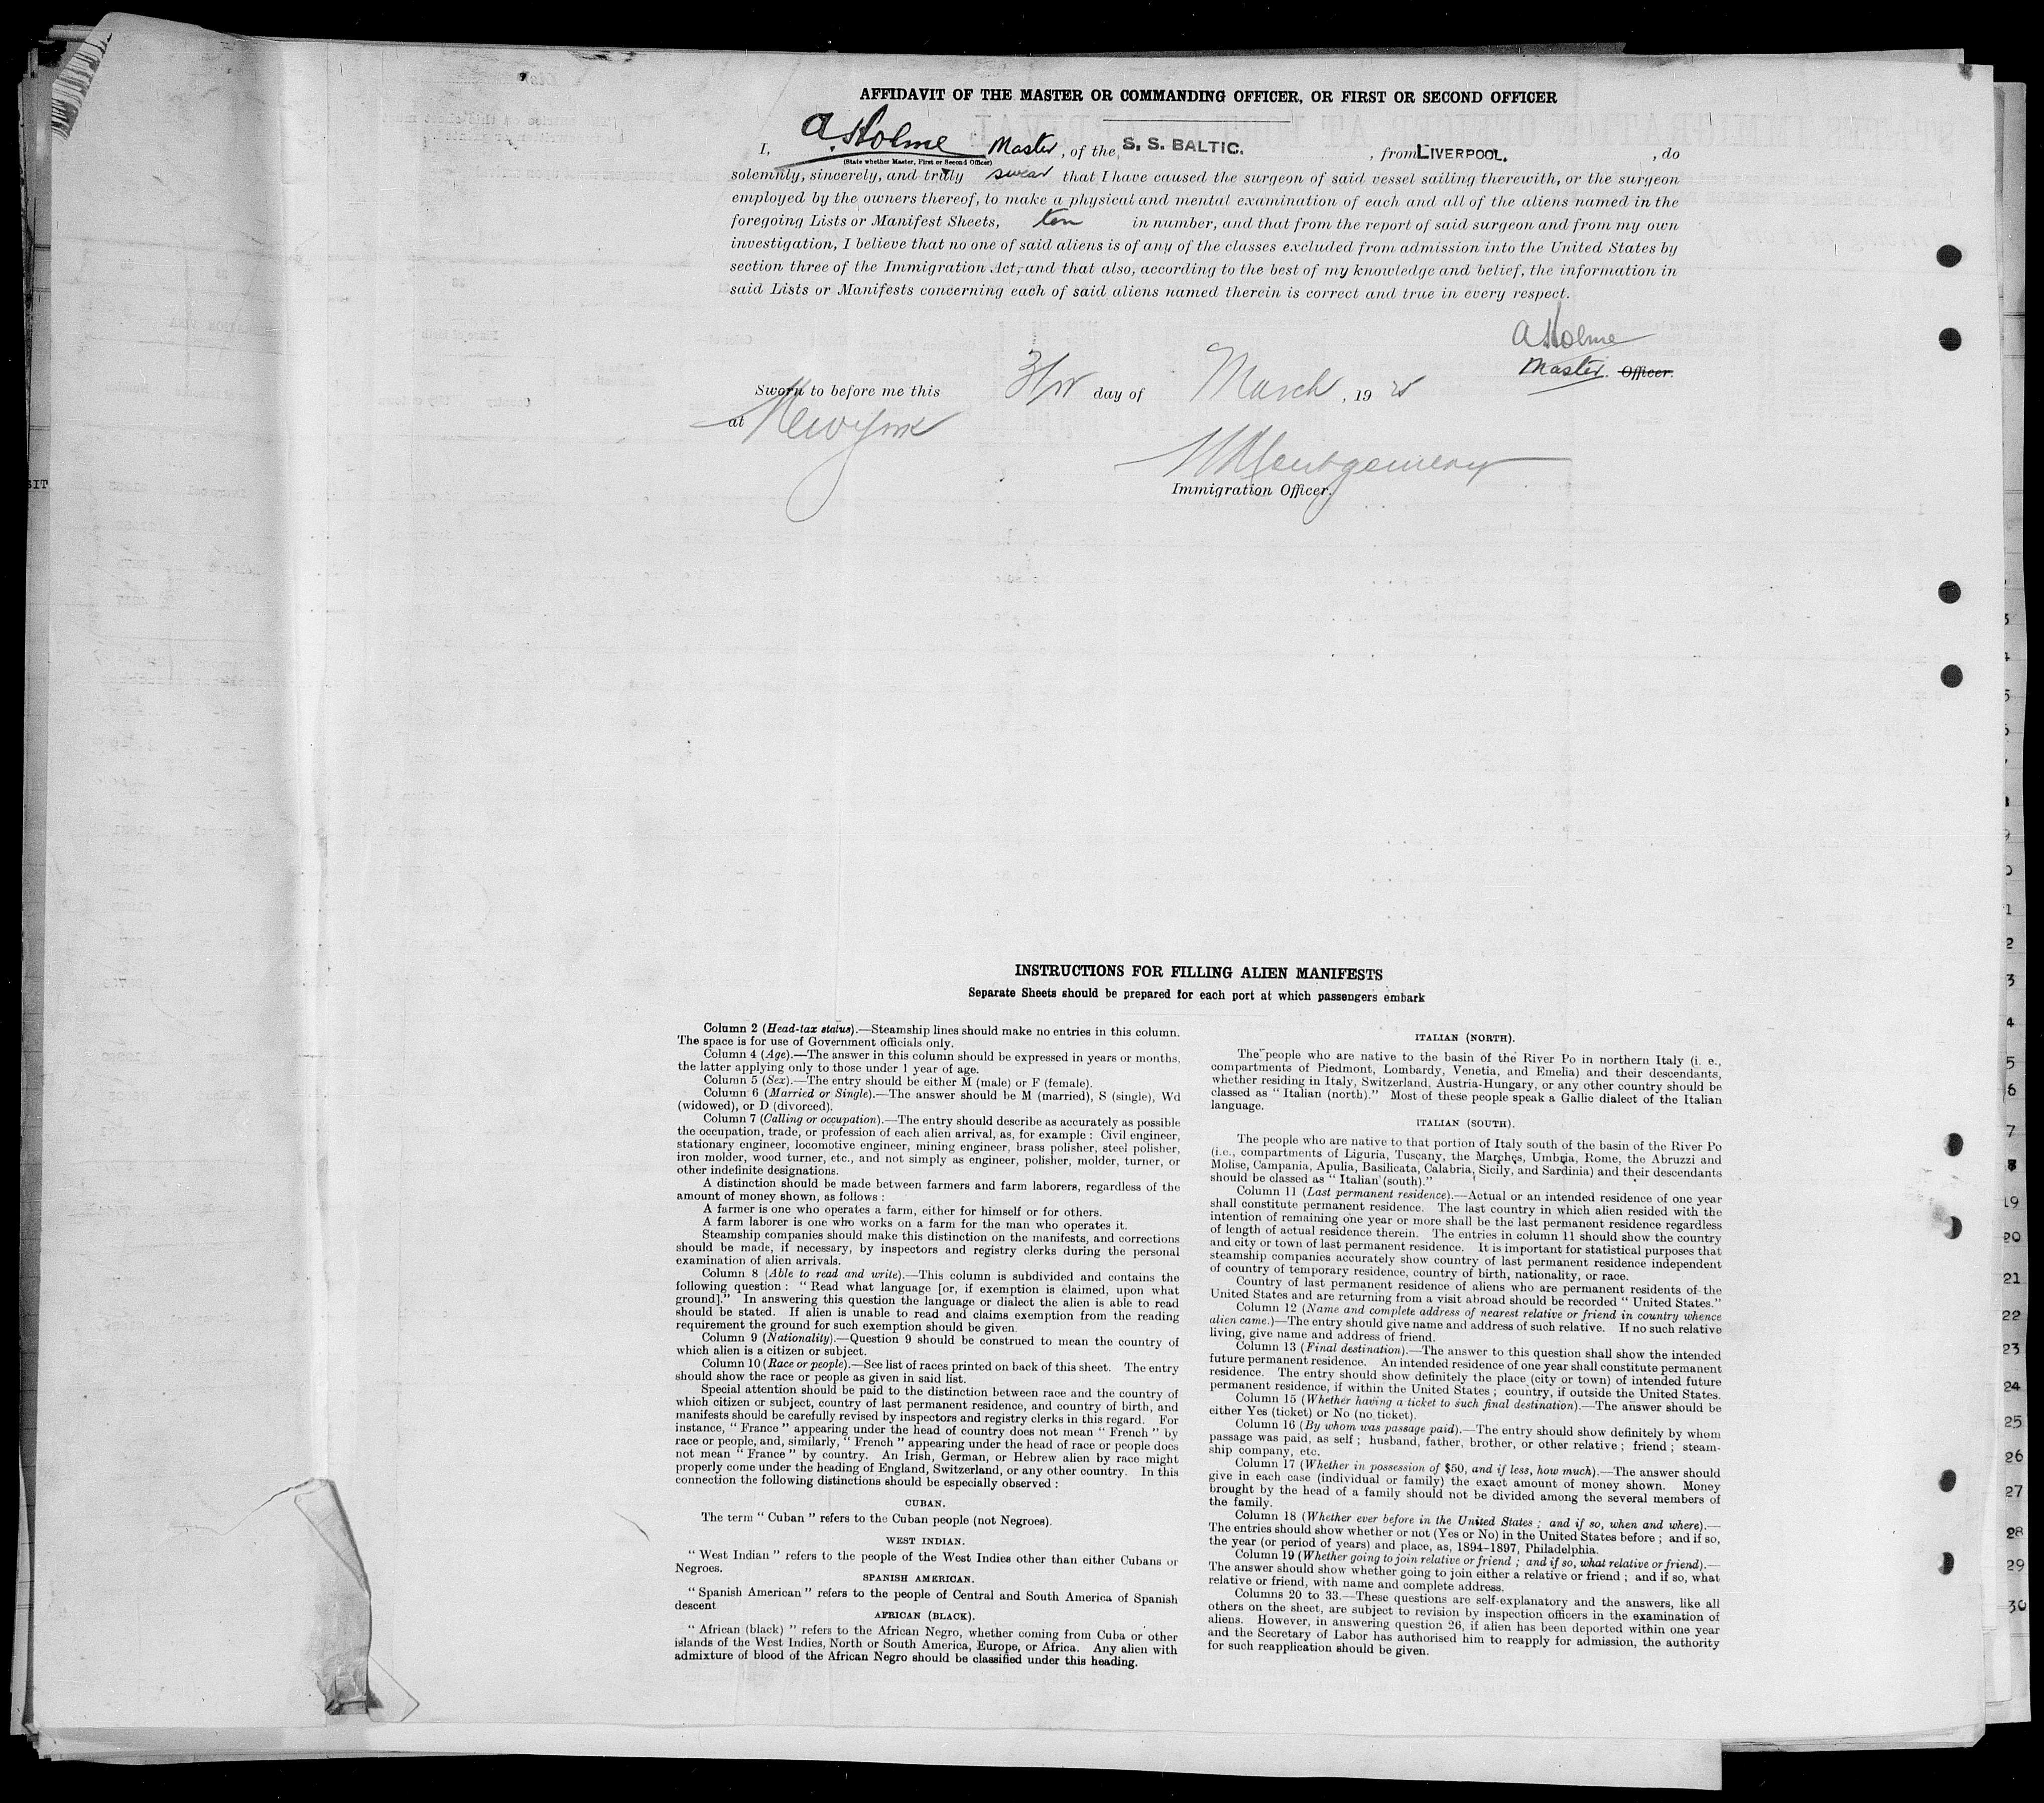 AFFIDAVIT OF THE MASTER OR COMMANDING OFFICER, OR FIRST OR SECOND OFFICER
I, A. Holme Master, of the S. S. BALTIC. , from LIVERPOOL. , do
(State whether Master, First or Second Officer)
solemnly, sincerely, and truly swear that I have caused the surgeon of said vessel sailing therewith, or the surgeon
employed by the owners thereof, to make a physical and mental examination of each and all of the aliens named in the
foregoing Lists or Manifest Sheets, ten in number, and that from the report of said surgeon and from my own
investigation, I believe that no one of said aliens is of any of the classes excluded from admission into the United States by
section three of the Immigration Act, and that also, according to the best of my knowledge and belief, the information in
said Lists or Manifests concerning each of said aliens named therein is correct and true in every respect.
A Holme
Master. Officer.
Sworn to before me this day of March, 19
at New York
Montgomery
Immigration Officer.
INSTRUCTIONS FOR FILLING ALIEN MANIFESTS
Separate Sheets should be prepared for each port at which passengers embark
Column 2 (Head-tax status).—Steamship lines should make no entries in this column.
The space is for use of Government officials only.
Column 4 (Age).—The answer in this column should be expressed in years or months,
the latter applying only to those under 1 year of age.
Column 5 (Sex).—The entry should be either M (male) or F (female).
Column 6 (Married or Single).—The answer should be M (married), S (single), Wd
(widowed), or D (divorced).
Column 7 (Calling or occupation).—The entry should describe as accurately as possible
the occupation, trade, or profession of each alien arrival, as, for example : Civil engineer,
stationary engineer, locomotive engineer, mining engineer, brass polisher, steel polisher,
iron molder, wood turner, etc., and not simply as engineer, polisher, molder, turner, or
other indefinite designations.
A distinction should be made between farmers and farm laborers, regardless of the
amount of money shown, as follows :
A farmer is one who operates a farm, either for himself or for others.
A farm laborer is one who works on a farm for the man who operates it.
Steamship companies should make this distinction on the manifests, and corrections
should be made, if necessary, by inspectors and registry clerks during the personal
examination of alien arrivals.
Column 8 (Able to read and write).—This column is subdivided and contains the
following question : " Read what language [or, if exemption is claimed, upon what
ground]." In answering this question the language or dialect the alien is able to read
should be stated. If alien is unable to read and claims exemption from the reading
requirement the ground for such exemption should be given.
Column 9 (Nationality).—Question 9 should be construed to mean the country of
which alien is a citizen or subject.
Column 10 (Race or people).—See list of races printed on back of this sheet. The entry
should show the race or people as given in said list.
Special attention should be paid to the distinction between race and the country of
which citizen or subject, country of last permanent residence, and country of birth, and
manifests should be carefully revised by inspectors and registry clerks in this regard. For
instance, " France " appearing under the head of country does not mean " French " by
race or people, and, similarly, " French " appearing under the head of race or people does
not mean " France " by country. An Irish, German, or Hebrew alien by race might
properly come under the heading of England, Switzerland, or any other country. In this
connection the following distinctions should be especially observed :
CUBAN.
The term " Cuban " refers to the Cuban people (not Negroes).
WEST INDIAN.
" West Indian " refers to the people of the West Indies other than either Cubans or
Negroes.
SPANISH AMERICAN.
" Spanish American " refers to the people of Central and South America of Spanish
descent
AFRICAN (BLACK).
" African (black) " refers to the African Negro, whether coming from Cuba or other
islands of the West Indies, North or South America, Europe, or Africa. Any alien with
admixture of blood of the African Negro should be classified under this heading.
ITALIAN (NORTH).
The people who are native to the basin of the River Po in northern Italy (i. e.,
compartments of Piedmont, Lombardy, Venetia, and Emelia) and their descendants,
whether residing in Italy, Switzerland, Austria-Hungary, or any other country should be
classed as " Italian (north)." Most of these people speak a Gallic dialect of the Italian
language.
ITALIAN (SOUTH).
The people who are native to that portion of Italy south of the basin of the River Po
(i.e., compartments of Liguria, Tuscany, the Marches, Umbria, Rome, the Abruzzi and
Molise, Campania, Apulia, Basilicata, Calabria, Sicily, and Sardinia) and their descendants
should be classed as " Italian (south)."
Column 11 (Last permanent residence).—Actual or an intended residence of one year
shall constitute permanent residence. The last country in which alien resided with the
intention of remaining one year or more shall be the last permanent residence regardless
of length of actual residence therein. The entries in column 11 should show the country
and city or town of last permanent residence. It is important for statistical purposes that
steamship companies accurately show country of last permanent residence independent
of country of temporary residence, country of birth, nationality, or race.
Country of last permanent residence of aliens who are permanent residents of the
United States and are returning from a visit abroad should be recorded " United States."
Column 12 (Name and complete address of nearest relative or friend in country whence
alien came.)—The entry should give name and address of such relative. If no such relative
living, give name and address of friend.
Column 13 (Final destination).—The answer to this question shall show the intended
future permanent residence. An intended residence of one year shall constitute permanent
residence. The entry should show definitely the place (city or town) of intended future
permanent residence, if within the United States ; country, if outside the United States.
Column 15 (Whether having a ticket to such final destination).—The answer should be
either Yes (ticket) or No (no ticket).
Column 16 (By whom was passage paid).—The entry should show definitely by whom
passage was paid, as self ; husband, father, brother, or other relative ; friend ; steam-
ship company, etc.
Column 17 (Whether in possession of $50, and if less, how much).—The answer should
give in each case (individual or family) the exact amount of money shown. Money
brought by the head of a family should not be divided among the several members of
the family.
Column 18 (Whether ever before in the United States ; and if so, when and where).—
The entries should show whether or not (Yes or No) in the United States before ; and if so,
the year (or period of years) and place, as, 1894-1897, Philadelphia.
Column 19 (Whether going to join relative or friend ; and if so, what relative or friend).—
The answer should show whether going to join either a relative or friend ; and if so, what
relative or friend, with name and complete address.
Columns 20 to 33.—These questions are self-explanatory and the answers, like all
others on the sheet, are subject to revision by inspection officers in the examination of
aliens. However, in answering question 26, if alien has been deported within one year
and the Secretary of Labor has authorised him to reapply for admission, the authority
for such reapplication should be given.
19
20
21
22
23
24
25
26
27
28
29
30